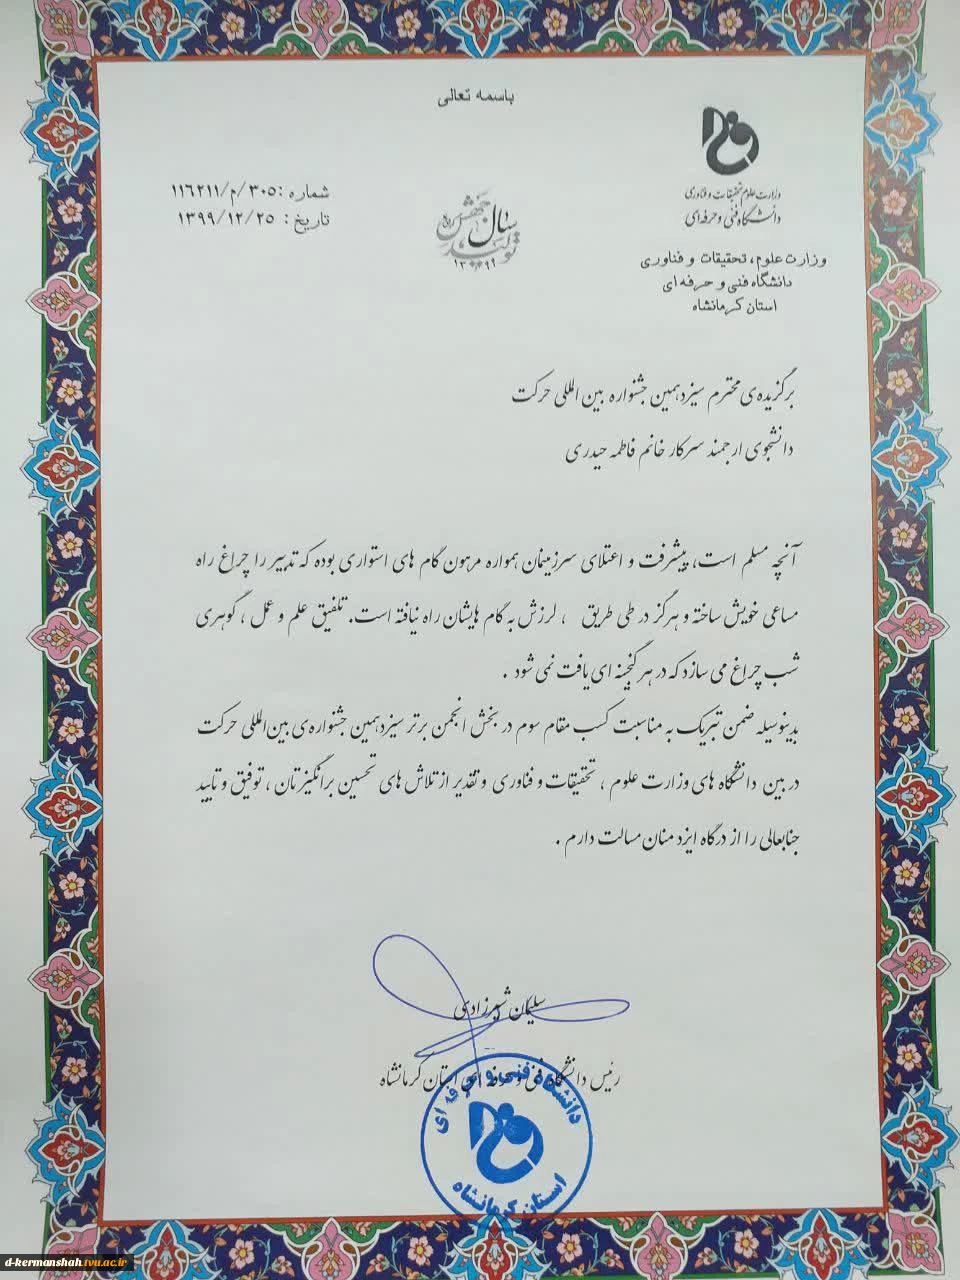 باسمه تعالی
وزارت علوم تحقیقات و فناوری
دانشگاه فنی و حرفه‌ای
وزارت علوم، تحقیقات و فناوری
دانشگاه فنی و حرفه ای
استان کرمانشاه
شماره :۳۰۵/م/۱۱۶۲۱۱
تاریخ : ۱۳۹۹/۱۲/۲۵
سال جهش
تولید
۱۳۹۹
برگزیده‌ی محترم سیزدهمین جشنواره بین المللی حرکت
دانشجوی ارجمند سرکار خانم فاطمه حیدری
آنچه مسلم است، پیشرفت و اعتلای سرزمینمان همواره مرهون گام های استواری بوده که تدبیر را چراغ راه
مساعی خویش ساخته و هرگز در طی طریق ، لرزش به گام هایشان راه نیافته است. تلفیق علم و عمل ، گوهری
شب چراغ می سازد که در هر گنجینه ای یافت نمی شود .
بدینوسیله ضمن تبریک به مناسبت کسب مقام سوم در بخش انجمن برتر سیزدهمین جشنواره‌ی بین‌المللی حرکت
در بین دانشگاه های وزارت علوم ، تحقیقات و فناوری و تقدیر از تلاش های تحسین برانگیزتان ، توفیق و تایید
جنابعالی را از درگاه ایزد منان مسالت دارم .
سلیمان شیرزادی
رئیس دانشگاه فنی و حرفه ای استان کرمانشاه
دانشگاه فنی و حرفه ای
استان کرمانشاه
d-kermanshah.tvu.ac.ir